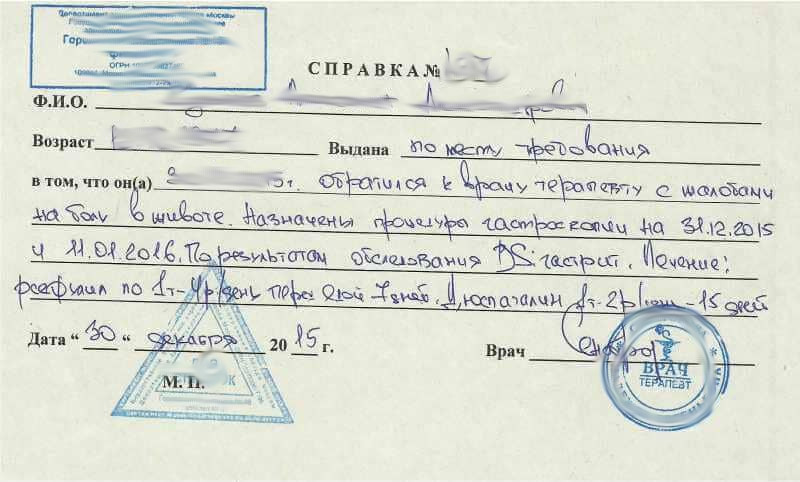 Департамент Москвы
ОГРН
СПРАВКА №
Ф.И.О.
Возраст Выдана по месту требования
в том, что он(а) г. обратился к врачу терапевту с жалобами
на боли в животе. Назначены процедуры гастроскопии на 31.12.2015
и 11.01.2016. По результатам обследования DS: гастрит. Лечение:
по 1т-4р/день перед едой 7 дней. 1т-2р/день-15 дней
Дата “ 30 “ декабря 20 15 г. Врач
М. П.
ВРАЧ
ТЕРАПЕВТ